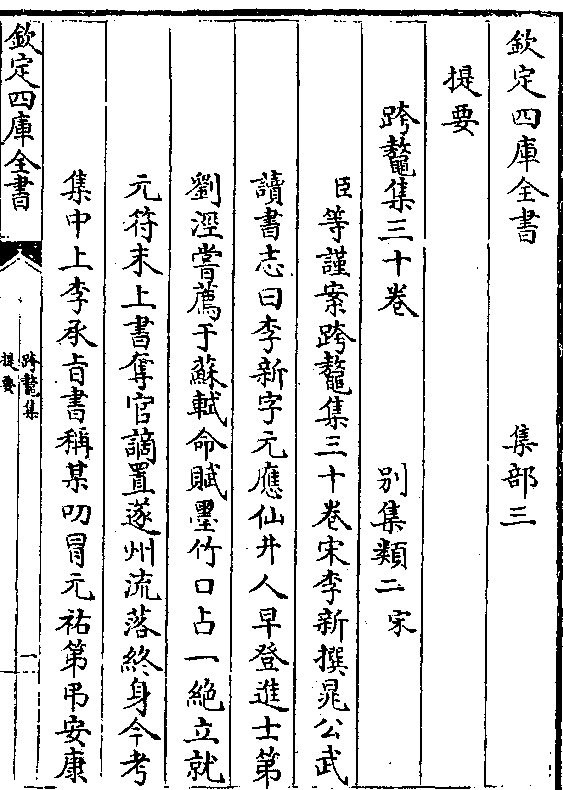 欽定四庫全書　集部三
提要
跨鼇集三十卷　别集類二宋
臣等謹案跨鼇集三十卷宋李新撰晁公武
讀書志曰李新字元應仙井人早登進士第
劉涇嘗薦于蘇軾命賦墨竹口占一絶立就
元符末上書奪官謫置遂州流落終身今考
集中上李承㫖書稱某叨冐元祐第弔安康
欽定四庫全書
跨鼇集
提要
一